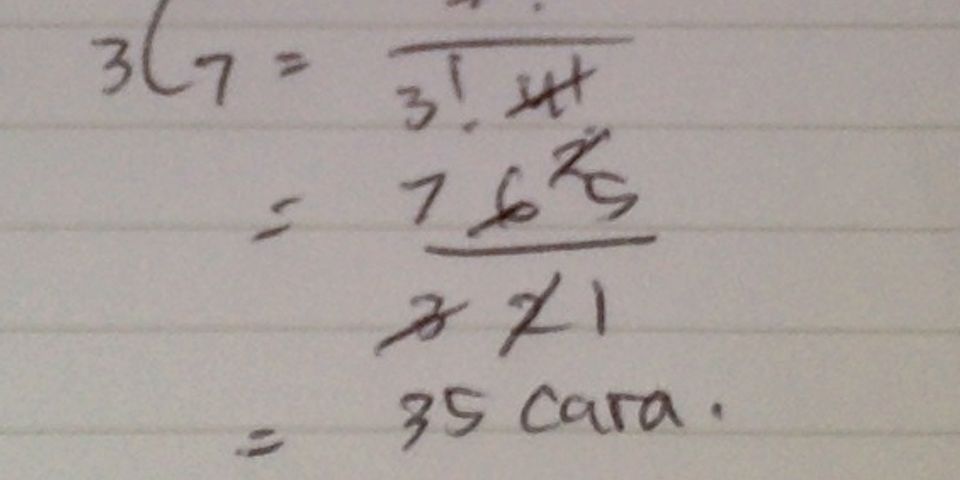 3C7 =
3! 4!
= 7 6 2 5
3 2 1
= 35 cara.